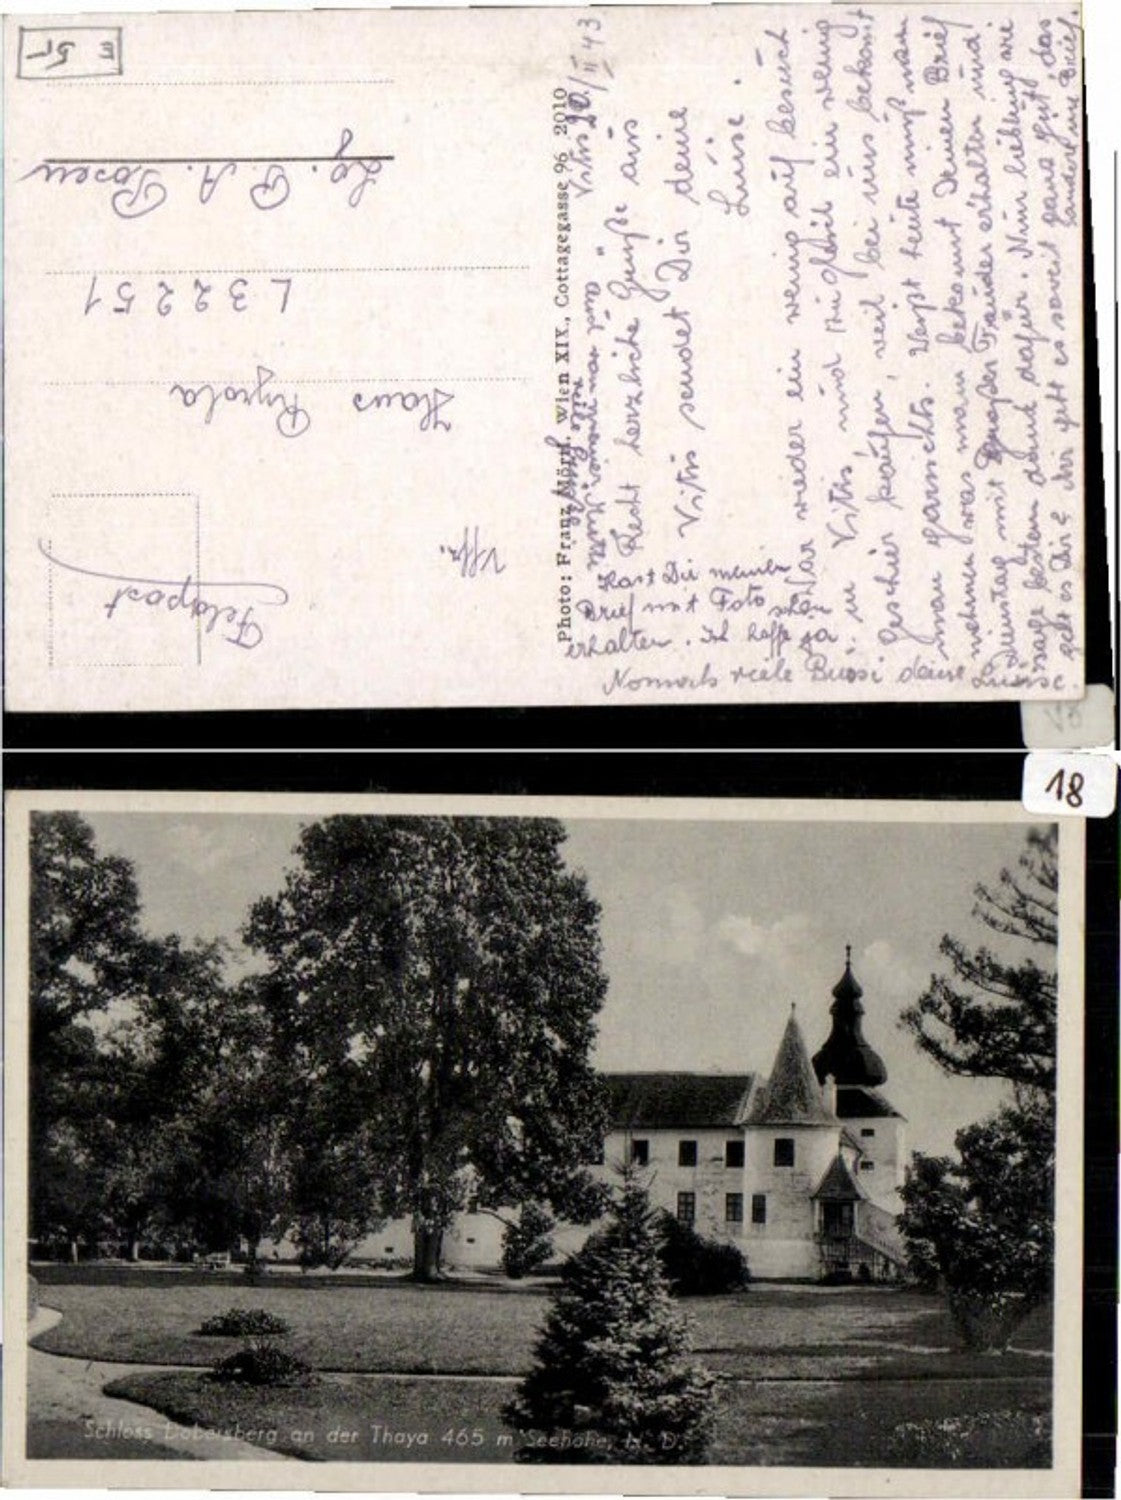 Feldpost
Uffz.
Hans
L 32251
Lg. P. A. Posen
5,-
Photo: Franz Mörtl, Wien XIX., Cottagegasse 96 2010
Vitis 20/II 43
Recht herzliche Grüße aus
Vitis sendet Dir deine
Luise.
auch von meiner Mutter
viele Grüße
War wieder ein wenig auf besuch
in Vitis und ein wenig
Geschier kaufen, weil bei uns bekomt
man garnichts. Weißt heute muß man
nehmen was man bekomt Deinen Brief
Dienstag mit großer Freude erhalten und
sage besten dank dafür. Nun liebling wie
geht es Dir? Mir geht es soweit ganz gut, das
Hast Dir meinen
Brief mit Foto schon
erhalten. Ich hoffe ja.
Nochmals viele Bussi deine Luise
18
Schloss Dobersberg an der Thaya 465 m Seehöhe, N. D.